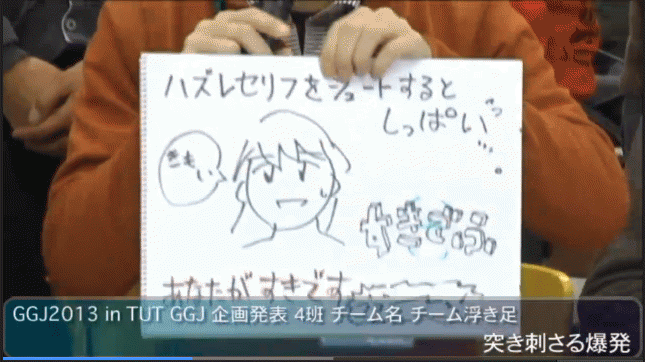 ハズレセリフをシュートすると
しっぱい
きもい
すきです
あなたがすきです
GGJ2013 in TUT GGJ 企画発表 4班 チーム名 チーム浮き足
突き刺さる爆発